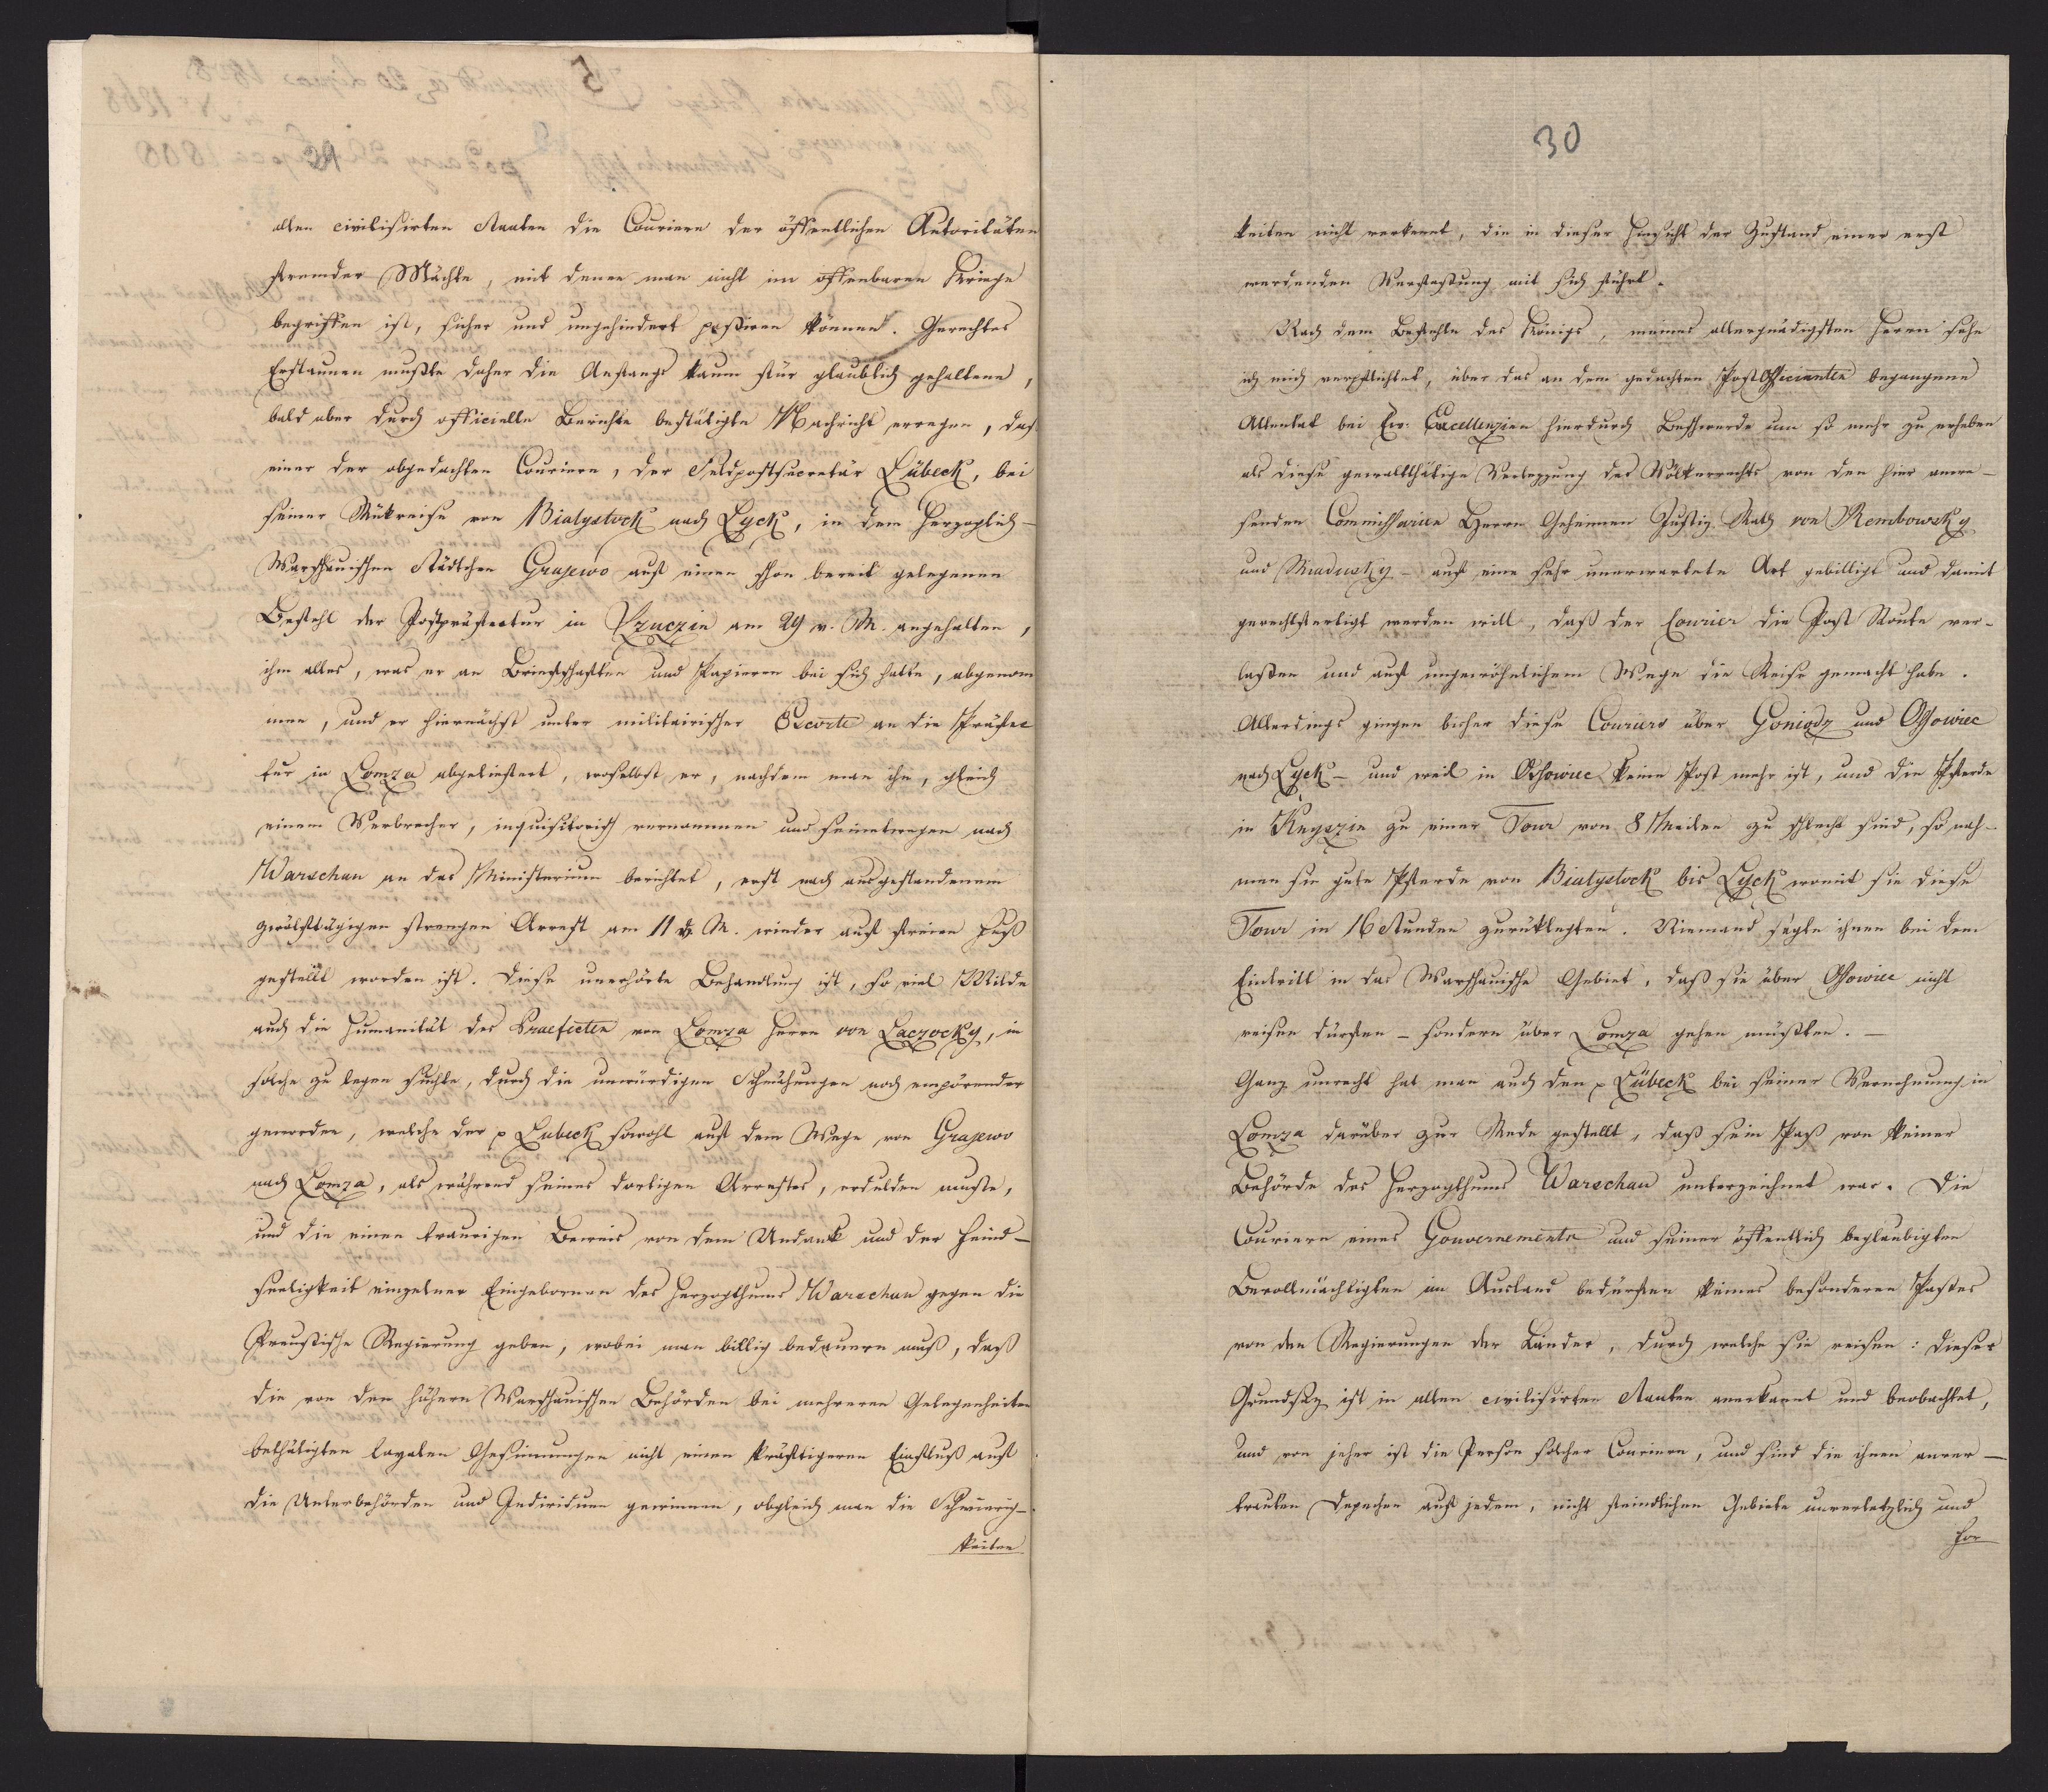 allen civilisirten Staaten die Couriere der öffentlichen Autoritäten
fremder Mächte, mit denen man nicht im offenbaren Kriege
begriffen ist, sicher und ungehindert passiren können. Gerechtes
Erstaunen mußte daher die Anfangs kaum für glaublich gehaltene,
bald aber durch officielle Berichte bestätigte Nachricht erregen, daß
einer der obgedachten Couriere, der Feldpostsecretär Lübeck, bei
seiner Rükreise von Bialystock nach Lyck, in dem Herzoglich-
Warschauischen Städtchen Grajewo auf einen schon bereit gelegenen
Befehl der Postpräfectur in Szuczin am 29 v. M. angehalten,
ihm alles, was er an Briefschaften und Papieren bei sich hatte, abgenom
men, und er hiernächst unter militairischer Escorte an die Präfec
tur in Lomza abgeliefert, woselbst er, nachdem man ihn, gleich
einem Verbrecher, inquisitorisch vernommen und seinetwegen nach
Warschau an das Ministerium berichtet, erst nach ausgestandenem
zwölftägigen strengen Arrest am 11 d. M. wieder auf freien Fuß
gestellt worden ist. Diese unerhörte Behandlung ist, so viel Milde
auch die Humanität des Praefecten von Lomza Herrn von Laczocky, in
solche zu legen suchte, durch die unwürdigen Schmähungen noch empörender
geworden, welche der p Lubeck sowohl auf dem Wege von Grajewo
nach Lomza, als während seines dortigen Arrestes, erdulden mußte,
und die einen traurigen Beweis von dem Undank und der Feind-
seeligkeit einzelner Eingebornen des Herzogthums Warschau gegen die
Preußische Regierung geben, wobei man billig bedauern muß, daß
die von den höhern Warschauischen Behörden bei mehreren Gelegenheiten
bethätigten loyalen Gesinnungen nicht einen kräftigeren Einfluß auf
die Unterbehörden und Individuen gewinnen, obgleich man die Schwierig-
keiten
30
keiten nicht verkennt, die in dieser Hinsicht der Zustand einer erst
werdenden Verfaßung mit sich führt.
Nach dem Befehle des Königs, meines allergnädigsten Herrn sehe
ich mich verpflichtet, über das an dem gedachten Post Officianten begangene
Attentat bei Ew. Excellenzien hierdurch Beschwerde um so mehr zu erheben
als diese gewaltthätige Verlezzung des Völkerrechts von den hier anwe-
senden Commissarien Herrn Geheimen Justiz Rath von Rembowsky
und auf eine sehr unerwartete Art gebilligt und damit
gerechtfertigt werden will, daß der Courier die Post Route ver-
laßen und auf ungewöhnlichem Wege die Reise gemacht habe.
Allerdings gingen bisher diese Couriers über Goniadz und Ossowiec
nach Lyck - und weil in Ossowiec keine Post mehr ist, und die Pferde
in Knyszin zu einer Tour von 8 Meilen zu schlecht sind, so nah-
men sie gute Pferde von Bialystock bis Lyck womit sie diese
Tour in 16 Stunden zurüklegten. Niemand sagte ihnen bei dem
Eintritt in das Warschauische Gebiet, daß sie über Ossowiec nicht
reisen dürften - sondern über Lomza gehen müßten. -
Ganz unrecht hat man auch den p Lübeck bei seiner Vernehmung in
Lomza darüber zur Rede gestellt, daß sein Paß von keiner
Behörde des Herzogthums Warschau unterzeichnet war. Die
Couriere eines Gouvernements und seiner öffentlich beglaubigten
Bevollmächtigten im Ausland bedürfen keines besonderen Paßes
von den Regierungen der Länder, durch welche sie reisen: dieser
Grundsaz ist in allen civilisirten Staaten anerkannt und beobachtet,
und von jeher ist die Person solcher Couriere, und sind die ihnen anver-
trauten Depechen auf jedem, nicht feindlichen Gebiete unverletzlich und